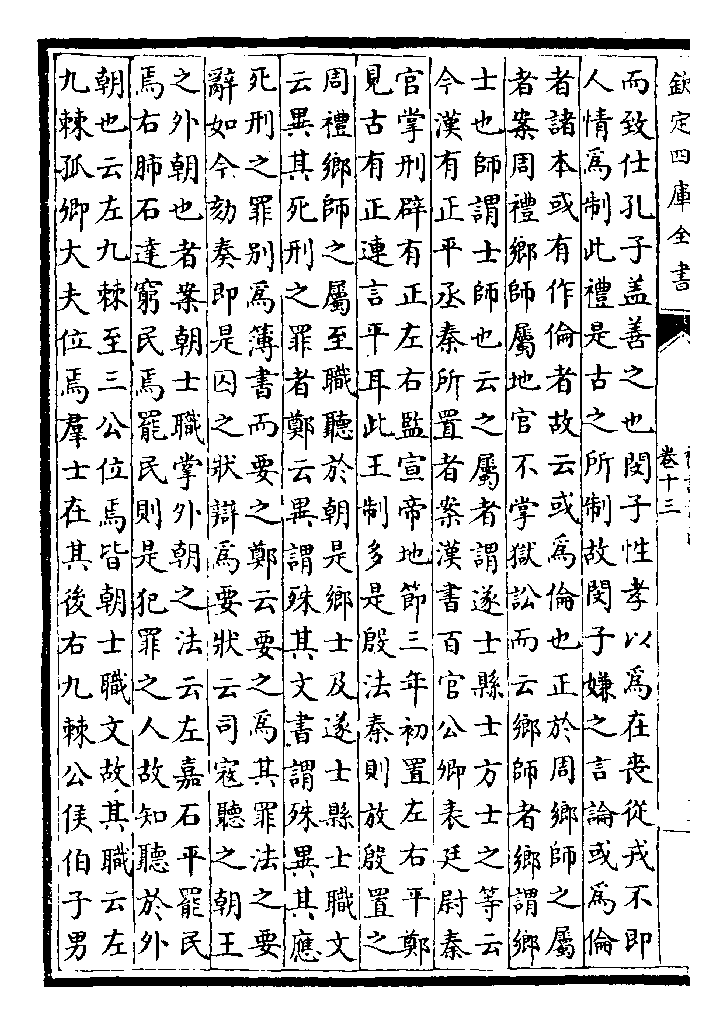 欽定四庫全書
卷十三
而致仕孔子盖善之也閔子性孝以爲在喪從戎不即
人情爲制此禮是古之所制故閔子嫌之言論或爲倫
者諸本或有作倫者故云或爲倫也正於周鄉師之屬
者案周禮鄉師屬地官不掌獄訟而云鄉師者鄉謂鄉
士也師謂士師也云之屬者謂遂士縣士方士之等云
今漢有正平丞秦所置者案漢書百官公卿表廷尉秦
官掌刑辟有正左右監宣帝地節三年初置左右平鄭
見古有正連言平耳此王制多是殷法秦則放殷置之
周禮鄉師之屬至職聽於朝是鄉士及遂士縣士職文
云異其死刑之罪者鄭云異謂殊其文書謂殊異其應
死刑之罪别爲簿書而要之鄭云要之爲其罪法之要
辭如今劾奏即是囚之狀辯爲要狀云司寇聽之朝王
之外朝也者案朝士職掌外朝之法云左嘉石平罷民
焉右肺石達窮民焉罷民則是犯罪之人故知聽於外
朝也云左九棘至三公位焉皆朝士職文故其職云左
九棘孤卿大夫位焉羣士在其後右九棘公侯伯子男